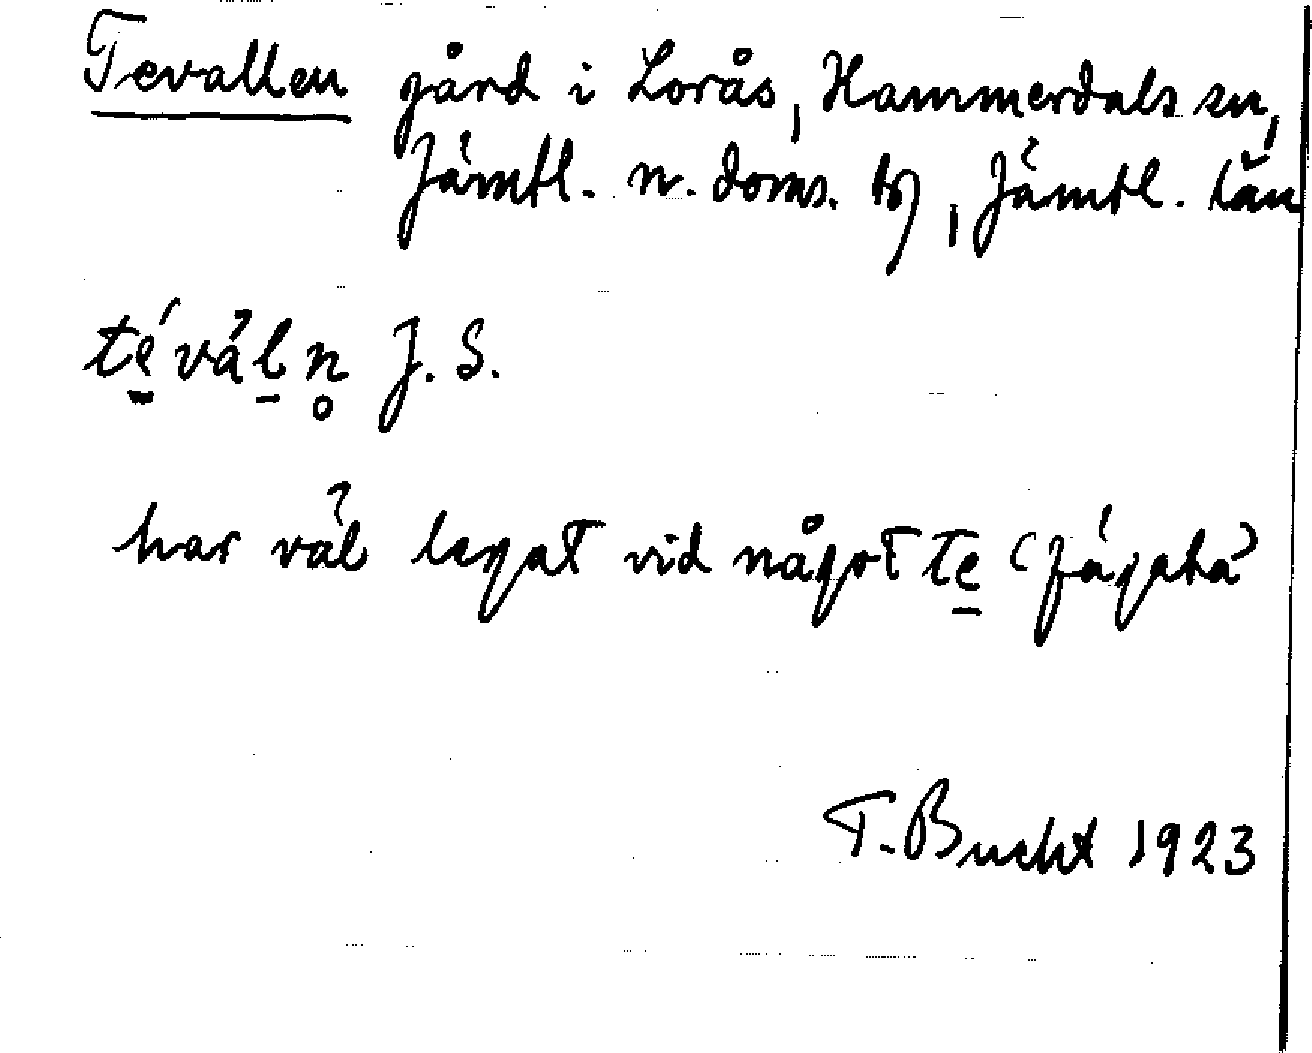 Tevallen gård i Lorås, Hammerdals sn,
Jämtl. n. doms. tg, Jämtl. län
té̲vàl̲n̥ J. S.
har väl legat vid något te̲ (fägata)
T. Bucht 1923